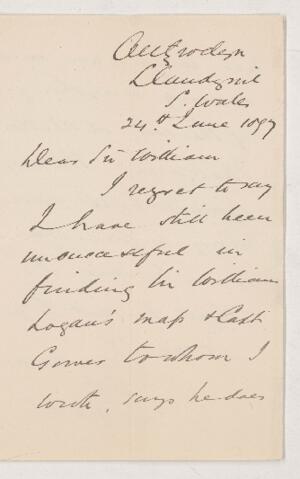 Llandyssil
S. Wales
24th June 1897
Dear Sir William
I regret to say
I have still been
unsuccessful in
finding Sir William
Logan's map & Capt
Gower to whom I
wrote, says he does